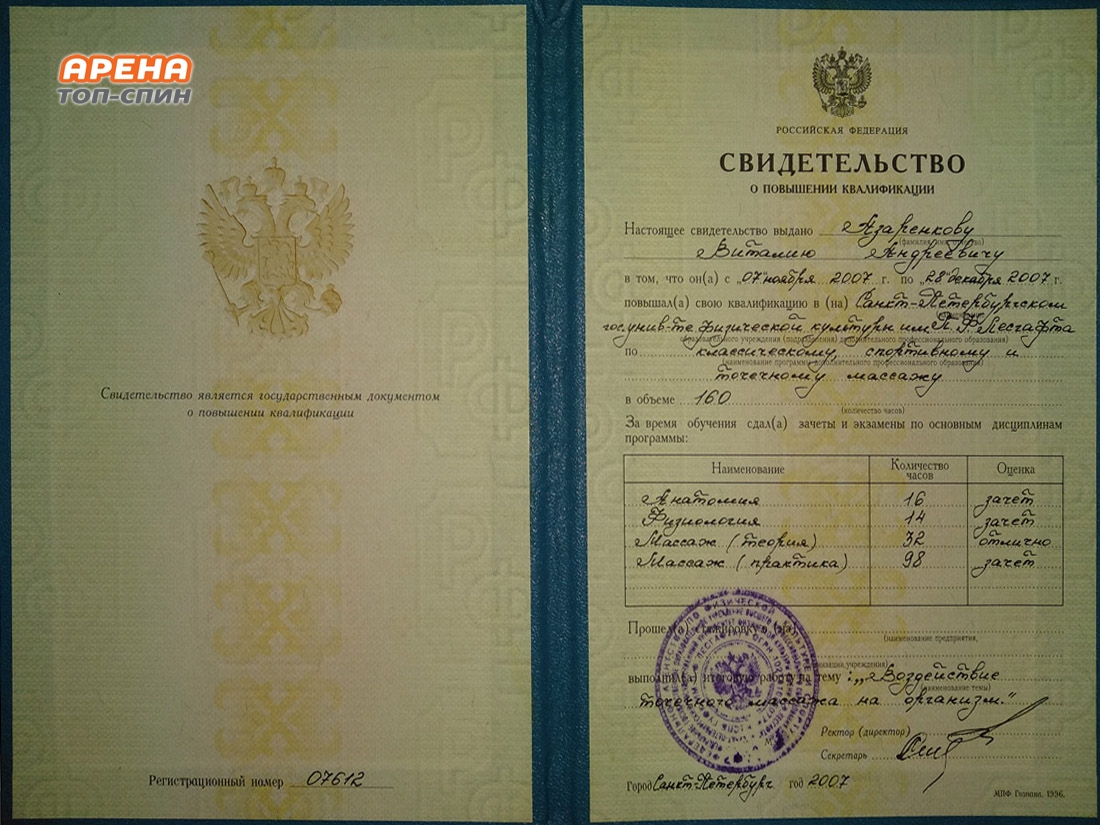 АРЕНА
ТОП-СПИН
Свидетельство является государственным документом
о повышении квалификации
Регистрационный номер 07612
РОССИЙСКАЯ ФЕДЕРАЦИЯ
СВИДЕТЕЛЬСТВО
О ПОВЫШЕНИИ КВАЛИФИКАЦИИ
Настоящее свидетельство выдано Азаренкову
(фамилия, имя, отчество)
Виталию Андреевичу
в том, что он(а) с „07" ноября 2007 г. по „28" декабря 2007 г.
повышал(а) свою квалификацию в (на) Санкт-Петербургском
гос. унив-те физической культуры им. П.Ф. Лесгафта
образовательного учреждения (подразделения) дополнительного профессионального образования)
по классическому, спортивному и
(наименование программы дополнительного профессионального образования)
точечному массажу
в объеме 160
(количество часов)
За время обучения сдал(а) зачеты и экзамены по основным дисциплинам
программы:
Наименование Количество часов Оценка
Анатомия 16 зачет
Физиология 14 зачет
Массаж (теория) 32 отлично
Массаж (практика) 98 зачет
Прошел(а) стажировку в (на)
(наименование предприятия,
организации, учреждения)
выполнил(а) итоговую работу на тему: „Воздействие
(наименование темы)
точечного массажа на организм."
Ректор (директор)
Секретарь
Город Санкт-Петербург год 2007
МПФ Гознака. 1996.